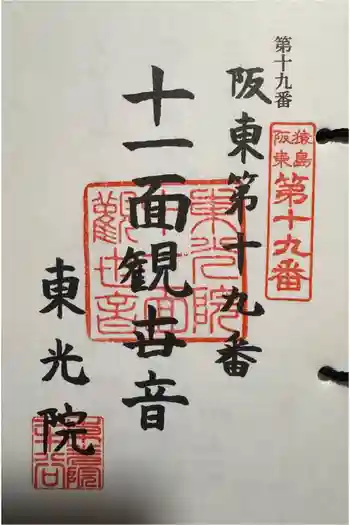 第十九番
猿島
阪東
第十九番
阪東第十九番
十一面観世音
東光院
東光院
観世音